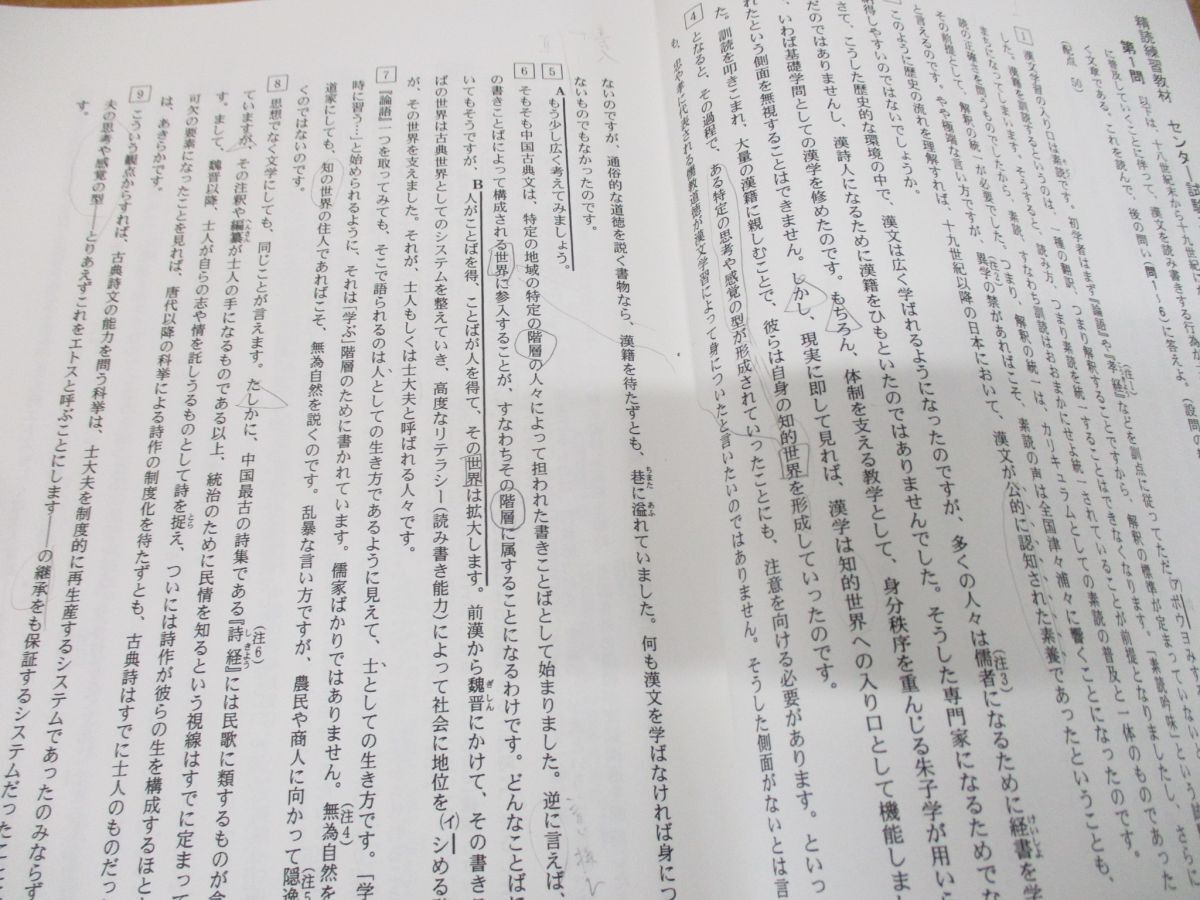 精読練習教材　センター試験
第1問　以下は、十八世紀末から十九世紀にか
に普及していくことに伴って、漢文を読み書きする行為が
く文章である。これを読んで、後の問い（問1〜6）に答えよ。（設問の
（配点　50）
1　漢文学習の入り口は素読です。初学者はまず『論語』や『孝経』などを訓点に従ってただ（ア）ボウヨみす
した。漢籍を訓読するというのは、一種の翻訳、つまり解釈することですから、解釈の標準が定まっていない
まちになってしまいます。そうすると、読み方、つまり素読を統一することはできなくなります。「素読吟味」という
読の正確さを問うものでしたから、素読、すなわち訓読はおおまかにせよ統一されていることが前提となりましたし、さらに
その前提として、解釈の統一が必要でした。つまり、解釈の統一は、カリキュラムとしての素読の普及と一体のものであった
と言えるのです。やや極端な言い方ですが、異学の禁があればこそ、素読の声は全国津々浦々に響くことになったのです。
このように歴史の流れを理解すれば、十九世紀以降の日本において、漢文が公的に認知された素養であったということも、
納得しやすいのではないでしょうか。
さて、こうした歴史的な環境の中で、漢文は広く学ばれるようになったのですが、多くの人々は儒者になるために経書を学
だのではありませんし、漢詩人になるために漢籍をひもといたのではありませんでした。そうした専門家になるためでな
、いわば基礎学問としての漢学を修めたのです。もちろん、体制を支える教学として、身分秩序を重んじる朱子学が用いら
れたという側面を無視することはできません。しかし、現実に即して見れば、漢学は知的世界への入り口として機能しま
た。訓読を叩きこまれ、大量の漢籍に親しむことで、彼らは自身の知的世界を形成していったのです。
4　となると、その過程で、ある特定の思考や感覚の型が形成されていったことにも、注意を向ける必要があります。といっ
も、忠や孝に代表される儒教道徳が漢文学習によって身についたと言いたいのではありません。そうした側面がないとは言
ないのですが、通俗的な道徳を説く書物なら、漢籍を待たずとも、巷に溢れていました。何も漢文を学ばなければ身につ
ないものでもなかったのです。
5　Aもう少し広く考えてみましょう。
6　そもそも中国古典文は、特定の地域の特定の階層の人々によって担われた書きことばとして始まりました。逆に言えば、
の書きことばによって構成される世界に参入することが、すなわちその階層に属することになるわけです。どんなことばに
いてもそうですが、B人がことばを得、ことばが人を得て、その世界は拡大します。前漢から魏晋にかけて、その書き
ばの世界は古典世界としてのシステムを整えていき、高度なリテラシー（読み書き能力）によって社会に地位を（イ）シめる
が、その世界を支えました。それが、士人もしくは士大夫と呼ばれる人々です。
7　『論語』一つを取ってみても、そこで語られるのは人としての生き方であるように見えて、士としての生き方です。「学
時に習う…」と始められるように、それは「学ぶ」階層のために書かれています。儒家ばかりではありません。無為自然を
道家にしても、知の世界の住人であればこそ、無為自然を説くのです。乱暴な言い方ですが、農民や商人に向かって隠逸
くのではないのです。
8　思想でなく文学にしても、同じことが言えます。たしかに、中国最古の詩集である『詩経』には民歌に類するものが含
ていますが、その注釈や編纂が士人の手になるものである以上、統治のために民情を知るという視線はすでに定まって
す。まして、魏晋以降、士人が自らの志や情を託しうるものとして詩を捉え、ついには詩作が彼らの生を構成するほと
可欠の要素になったことを見れば、唐代以降の科挙による詩作の制度化を待たずとも、古典詩はすでに士人のものだっ
は、あきらかです。
9　こういう観点からすれば、古典詩文の能力を問う科挙は、士大夫を制度的に再生産するシステムであったのみならず
夫の思考や感覚の型——とりあえずこれをエトスと呼ぶことにします——の継承をも保証するシステムだったこ
す。